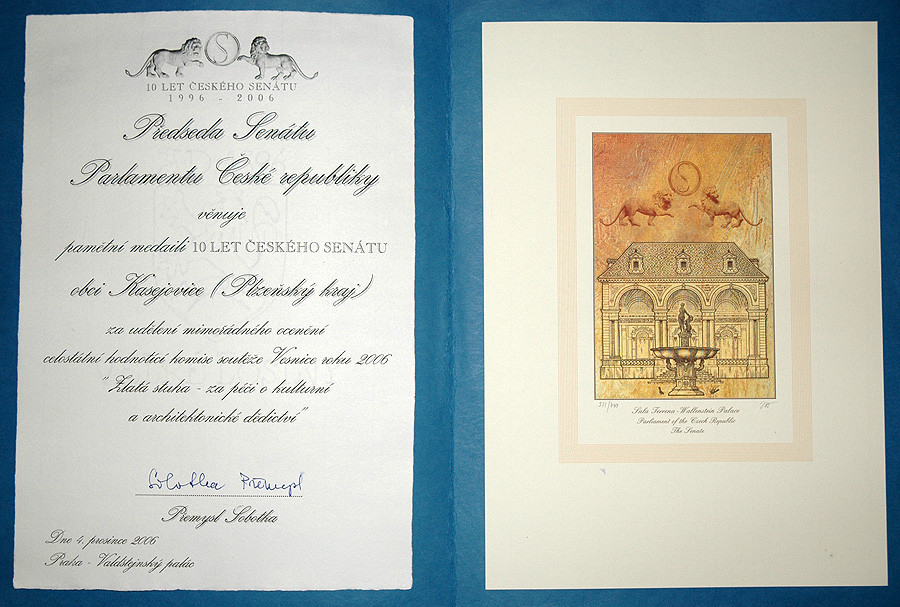 10 LET ČESKÉHO SENÁTU
1996 - 2006
Předseda Senátu
Parlamentu České republiky
věnuje
pamětní medaili 10 LET ČESKÉHO SENÁTU
obci Kasejovice (Plzeňský kraj)
za udělení mimořádného ocenění
celostátní hodnotící komise soutěže Vesnice roku 2006
"Zlatá stuha - za péči o kulturní
a architektonické dědictví"
Sobotka Přemysl
Přemysl Sobotka
Dne 4. prosince 2006
Praha - Valdštejnský palác
S
Sala Terrena - Wallenstein Palace
Parliament of the Czech Republic
The Senate